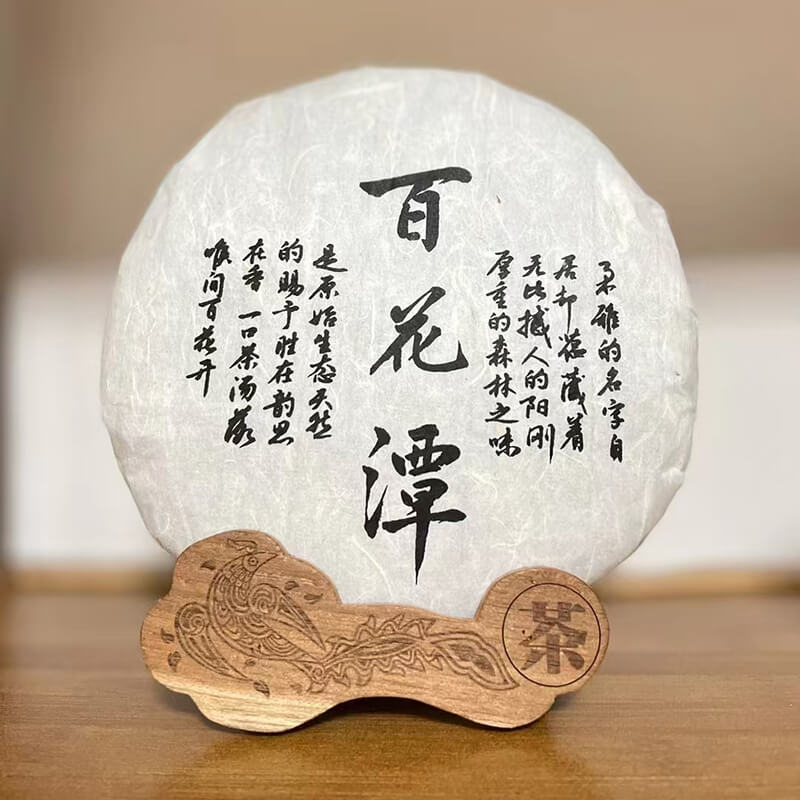 柔雅的名字自
居却蕴藏着
无比撼人的阳刚
厚重的森林之味
百花潭
是原始生态天然
的赐于胜在韵思
在香 一口茶汤落
喉间百花开
茶